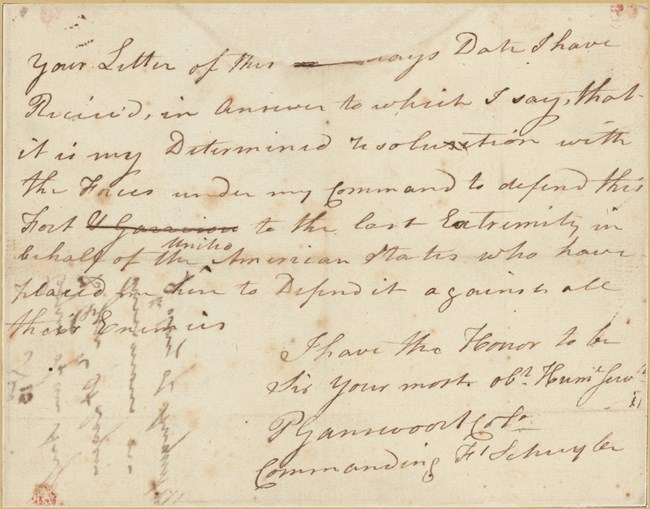 Your Letter of this days Date I have
Reciev'd, in Answer to which I say, that
it is my Determined resolution with
the Forces under my Command to defend this
Fort & Garrison to the last Extremity in
behalf of the United American States who have
placed me here to Defend it against all
their Enemies
I have the Honor to be
Sir Your most obt. Hume. Serv
P Gansevoort Colo.
Commanding Ft Schuyler